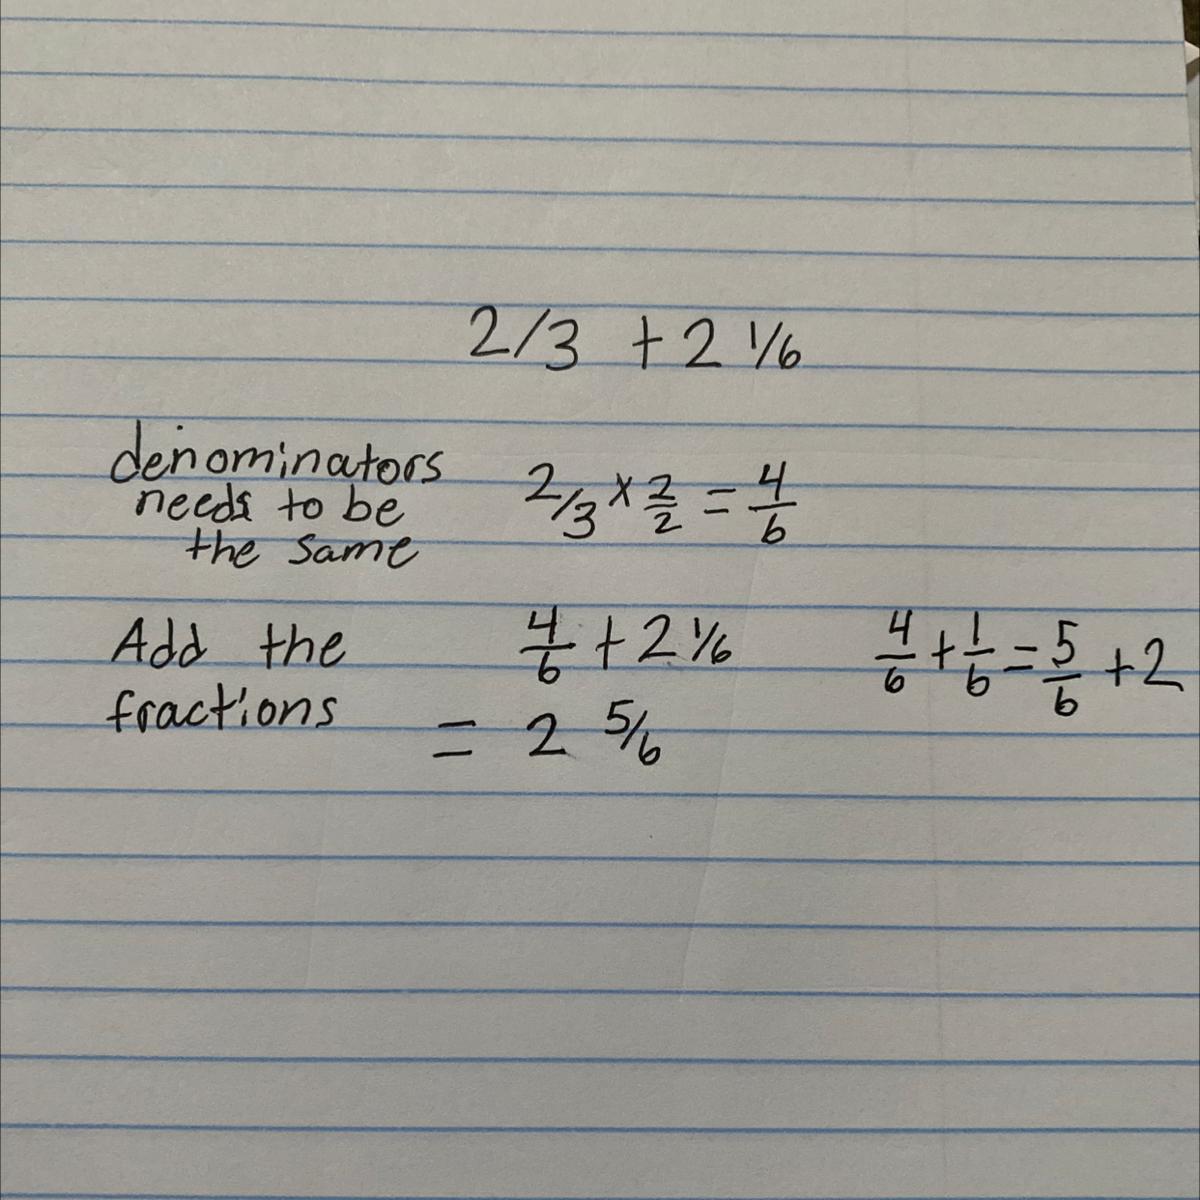 2/3 + 2 1/6
denominators
needs to be
the same
2/3 × 2/2 = 4/6
Add the
fractions
4/6 + 2 1/6
= 2 5/6
4/6 + 1/6 = 5/6 + 2